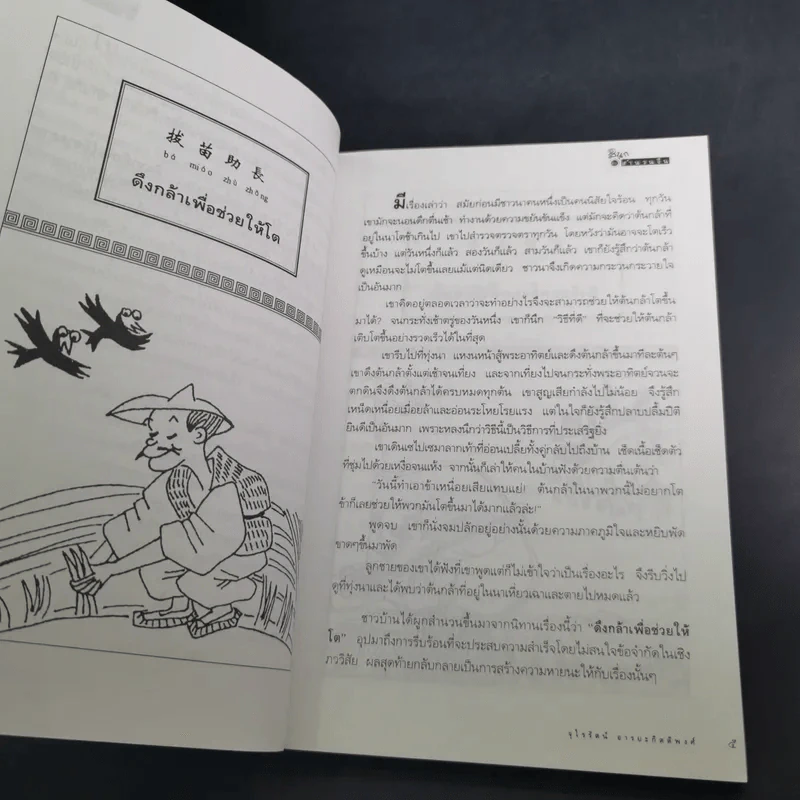 拔苗助長
bá miáo zhù zhǎng
ดึงกล้าเพื่อช่วยให้โต
สำนวนจีน
มีเรื่องเล่าว่า สมัยก่อนมีชาวนาคนหนึ่งเป็นคนนิสัยใจร้อน ทุกวัน
เขามักจะนอนดึกตื่นเช้า ทำงานด้วยความขยันขันแข็ง แต่มักจะคิดว่าต้นกล้าที่
อยู่ในนาโตช้าเกินไป เขาไปสำรวจตรวจตราทุกวัน โดยหวังว่ามันอาจจะโตเร็ว
ขึ้นบ้าง แต่วันหนึ่งก็แล้ว สองวันก็แล้ว สามวันก็แล้ว เขาก็ยังรู้สึกว่าต้นกล้า
ดูเหมือนจะไม่โตขึ้นเลยแม้แต่นิดเดียว ชาวนาจึงเกิดความกระวนกระวายใจ
เป็นอันมาก
เขาคิดอยู่ตลอดเวลาว่าจะทำอย่างไรจึงจะสามารถช่วยให้ต้นกล้าโตขึ้น
มาได้? จนกระทั่งเช้าตรู่ของวันหนึ่ง เขาก็นึก "วิธีที่ดี" ที่จะช่วยให้ต้นกล้า
เติบโตขึ้นอย่างรวดเร็วได้ในที่สุด
เขารีบไปที่ทุ่งนา แหงนหน้าสู้พระอาทิตย์และดึงต้นกล้าขึ้นมาทีละต้นๆ
เขาดึงต้นกล้าตั้งแต่เช้าจนเที่ยง และจากเที่ยงไปจนกระทั่งพระอาทิตย์จวนจะ
ตกดินจึงดึงต้นกล้าได้ครบหมดทุกต้น เขาสูญเสียกำลังไปไม่น้อย จึงรู้สึก
เหน็ดเหนื่อยเมื่อยล้าและอ่อนระโหยโรยแรง แต่ในใจก็ยังรู้สึกปลาบปลื้มปิติ
ยินดีเป็นอันมาก เพราะหลงนึกว่าวิธีนี้เป็นวิธีการที่ประเสริฐยิ่ง
เขาเดินเซไปเซมาลากเท้าที่อ่อนเปลี้ยทั้งคู่กลับไปถึงบ้าน เช็ดเนื้อเช็ดตัว
ที่ชุ่มไปด้วยเหงื่อจนแห้ง จากนั้นก็เล่าให้คนในบ้านฟังด้วยความตื่นเต้นว่า
"วันนี้ทำเอาข้าเหนื่อยเสียแทบแย่! ต้นกล้าในนาพวกนี้ไม่อยากโต
ข้าก็เลยช่วยให้พวกมันโตขึ้นมาได้มากแล้วล่ะ!"
พูดจบ เขาก็นั่งจมปลักอยู่อย่างนั้นด้วยความภาคภูมิใจและหยิบพัด
ขาดๆขึ้นมาพัด
ลูกชายของเขาได้ฟังที่เขาพูดแต่ก็ไม่เข้าใจว่าเป็นเรื่องอะไร จึงรีบวิ่งไป
ดูที่ทุ่งนาและได้พบว่าต้นกล้าที่อยู่ในนาเหี่ยวเฉาและตายไปหมดแล้ว
ชาวบ้านได้ผูกสำนวนขึ้นมาจากนิทานเรื่องนี้ว่า "ดึงกล้าเพื่อช่วยให้
โต" อุปมาถึงการรีบร้อนที่จะประสบความสำเร็จโดยไม่สนใจข้อจำกัดในเชิง
ภววิสัย ผลสุดท้ายกลับกลายเป็นการสร้างความหายนะให้กับเรื่องนั้นๆ
จุไรรัตน์ อารยะกิตติพงศ์ ๕